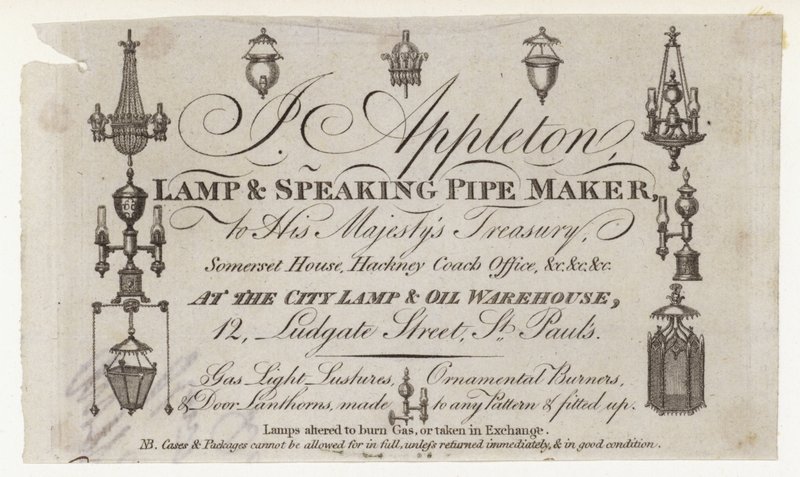 J. Appleton,
LAMP & SPEAKING PIPE MAKER,
to His Majesty's Treasury,
Somerset House, Hackney Coach Office, &c. &c. &c.
AT THE CITY LAMP & OIL WAREHOUSE,
12, Ludgate Street, St. Paul's.
Gas Light-Lustures, Ornamental Burners,
& Door Lanthorns, made to any Pattern & fitted up.
Lamps altered to burn Gas, or taken in Exchange.
NB. Cases & Packages cannot be allowed for in full, unleſs returned immediately, & in good condition.